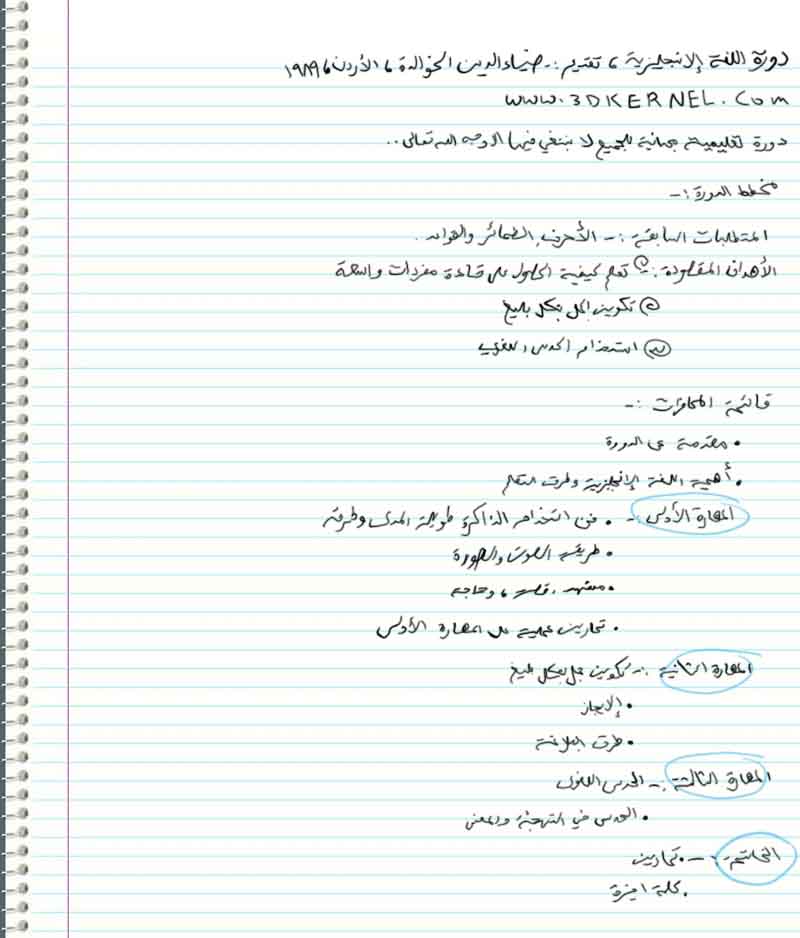 دورة اللغة الإنجليزية ، تقديم :- ضياء الدين الخوالدة ، الأردن ، ١٩٨٩
www.3DKERNEL.Com
دورة تعليمية مجانية للجميع لا ينبغي فيها إلا وجه الله تعالى ..
مخطط الدورة :-
المتطلبات السابقة :- الأحرف، الضمائر والقواعد .
الأهداف المقصودة :- ① تعلم كيفية الحصول على قاعدة مفردات واسعة
② تكوين الجمل بشكل بليغ
③ استخدام الحدس اللغوي
قائمة المحاضرات :-
• مقدمة عن الدورة
• أهمية اللغة الإنجليزية وطرق التعلم
المهارة الأولى :- • فن استخدام الذاكرة طويلة المدى وطرقه
• طريقة الصوت والصورة
• مشهد ، قصة ، وحاجه
• تمارين عملية على المهارة الأولى
المهارة الثانية :- تكوين جمل بشكل بليغ
• الإيجاز
• طرق البلاغة
المهارة الثالثة :- الحدس اللغوي
• الحدس في التهجئة والمعنى
الخاتمة :- • تمارين
• كلمة أخيرة